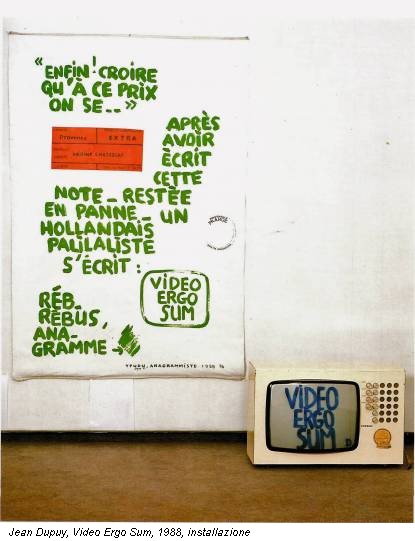 « ENFIN! CROIRE
QU'À CE PRIX
ON SE.. »
EXTRA
APRÈS
AVOIR
ÉCRIT
CETTE
NOTE_ RESTÉE
EN PANNE_ UN
HOLLANDAIS
S'ÉCRIT :
VIDEO
ERGO
SUM
RÉB_
RÉBUS,
ANA-
GRAMME
YPUDU, ANAGRAMMISTE 1988
VIDEO
ERGO
SUM
Jean Dupuy, Video Ergo Sum, 1988, installazione